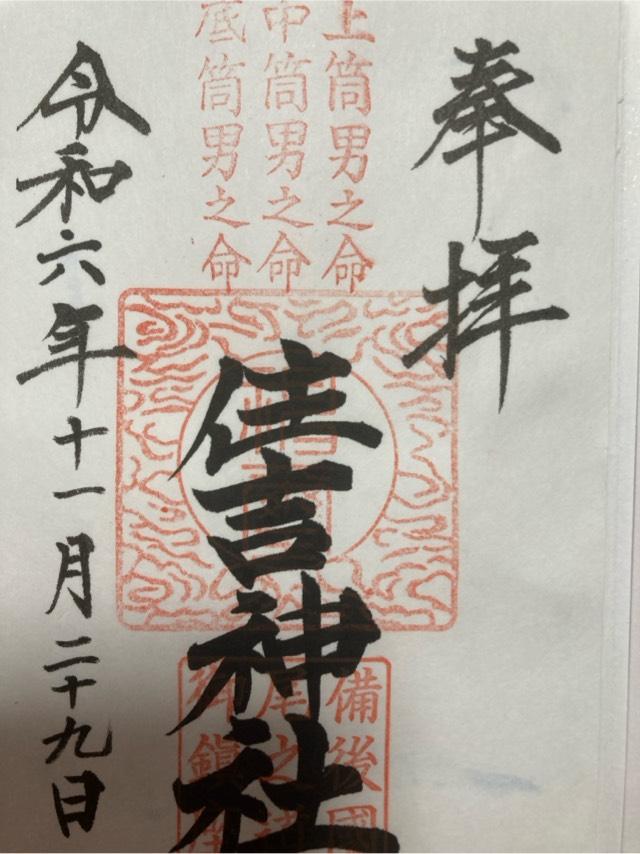 奉拝
上筒男之命
中筒男之命
底筒男之命
住吉神社
備後國
之
鎮
令和六年十一月二十九日